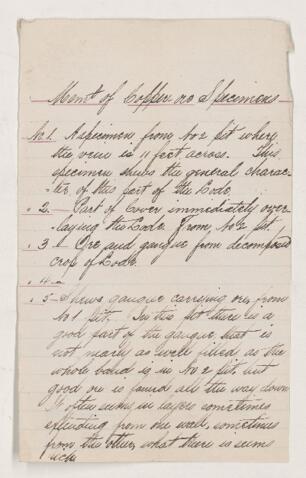 Memt of Copper ore Specimens
No 1. A specimen from No 2 pit where
the vein is 11 feet across. This
specimen shews the general charac-
ter of this part of the Lode.
" 2 - Part of Cover immediately over-
laying the Lode from No 2 pit.
" 3 - Ore and gangue from decomposed
crop of Lode.
" 4 -
" 5 - Shews gangue carrying ore from
No 1 pit. In this pit there is a
good part of the gangue that is
not nearly as well filled as the
whole band is in No 2 pit, but
good ore is found all the way down
It often seems in layers sometimes
extending from one wall, sometimes
from the other, what there is seems
rich